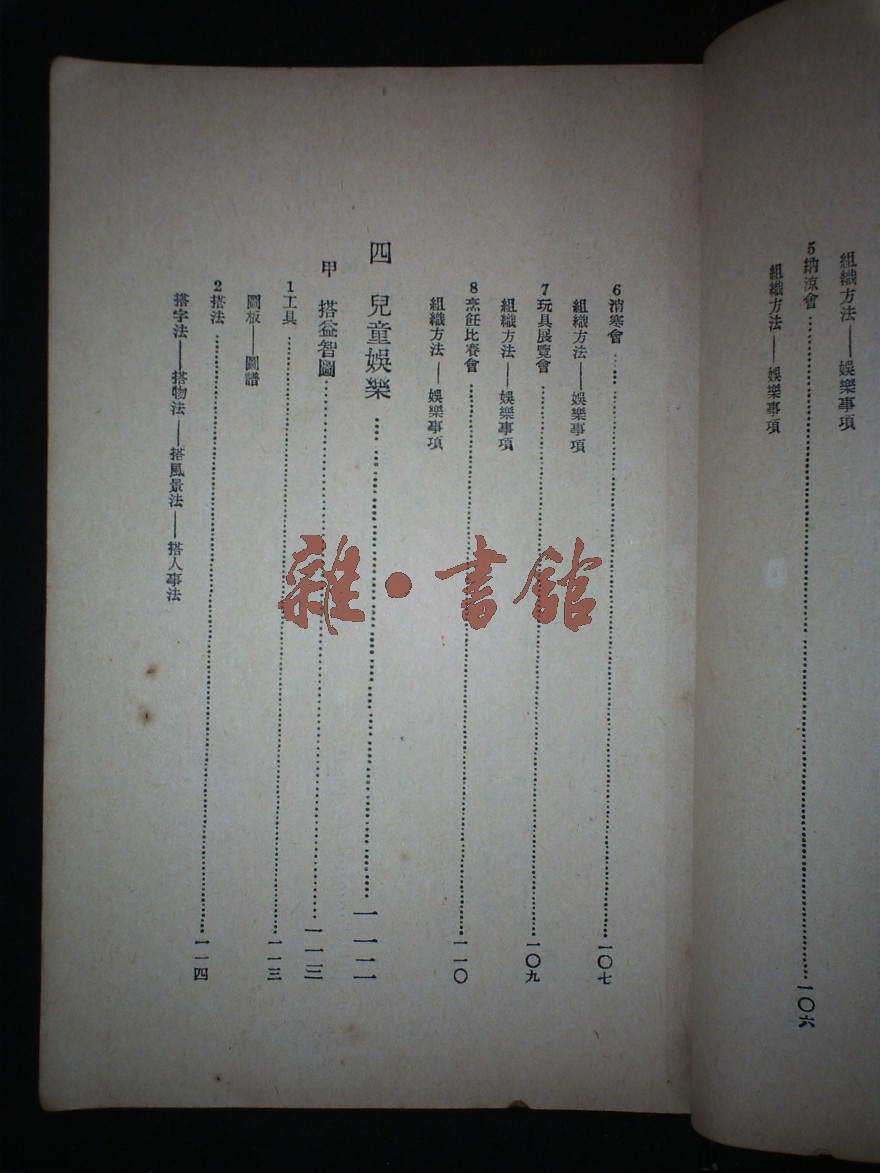 組織方法——娛樂事項
5 納涼會……一〇六
組織方法——娛樂事項
6 消寒會……一〇七
組織方法——娛樂事項
7 玩具展覽會……一〇九
組織方法——娛樂事項
8 烹飪比賽會……一一〇
組織方法——娛樂事項
四 兒童娛樂……一一一
甲 搭益智圖……一一三
1 工具……一一三
圖板——圖譜
2 搭法……一一四
搭字法——搭物法——搭風景法——搭人事法
雜·書館